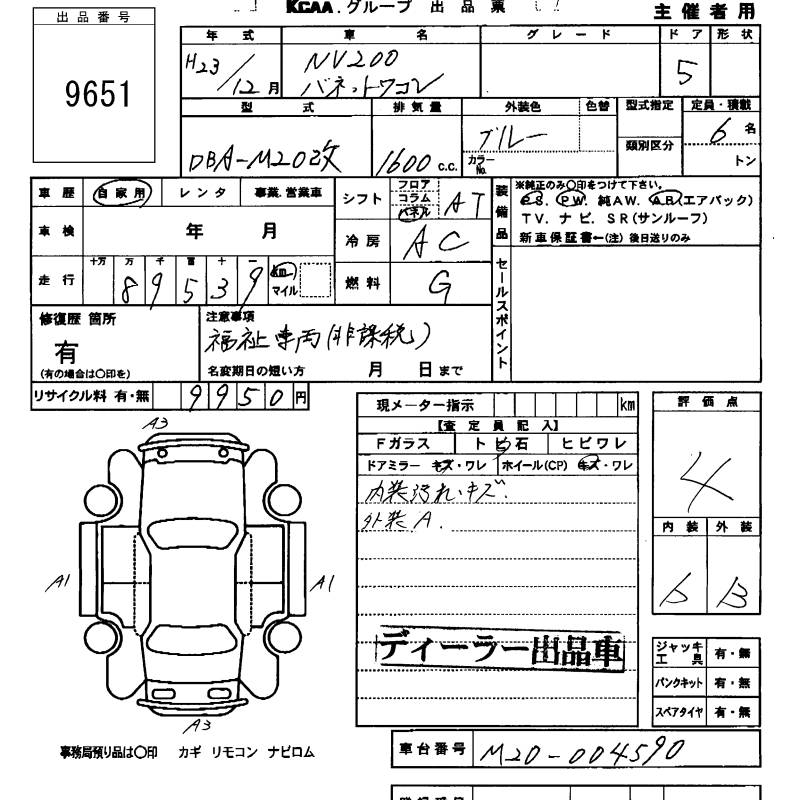 KCAA.グループ 出品票
主催者用
出品番号
9651
年式 車名 グレード ドア 形状
H23/12月 NV200 バネットワゴン 5
型式 排気量 外装色 色替 型式指定 定員・積載
類別区分
DBA-M20改 1600 c.c. ブルー カラーNo. 6名
トン
車歴 自家用 レンタ 事業.営業車
シフト フロア コラム パネル AT
装備品
※純正のみ〇印をつけて下さい。
PS. PW. 純AW. AB(エアバック)
TV. ナビ. SR(サンルーフ)
新車保証書←(注) 後日送りのみ
車検 年 月
冷房 AC
走行 十万 万 千 百 十 一
89539 km マイル
燃料 G
セールスポイント
修復歴 箇所
有
(有の場合は〇印を)
注意事項
福祉車両(非課税)
名変期日の短い方 月 日まで
リサイクル料 有・無 9950円
現メーター指示 km
【査定員記入】
Fガラス トビ石 ヒビワレ
ドアミラー キズ・ワレ ホイール(CP) キズ・ワレ
内装汚れ・キズ.
外装A.
ディーラー出品車
評価点
4
内装 外装
b B
A3
A1
A1
A3
ジャッキ工具 有・無
パンクキット 有・無
スペアタイヤ 有・無
事務局預り品は〇印 カギ リモコン ナビロム
車台番号 M20-004590